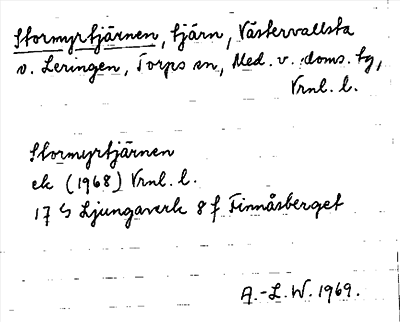 Stormyrtjärnen, tjärn, Västervallsta
v. Leringen, Torps sn, Med. v. doms. tg,
Vrnl. l.
Stormyrtjärnen
ek (1968) Vrnl. l.
17 G Ljungaverk 8 f Finnåsberget
A.-L. W. 1969.